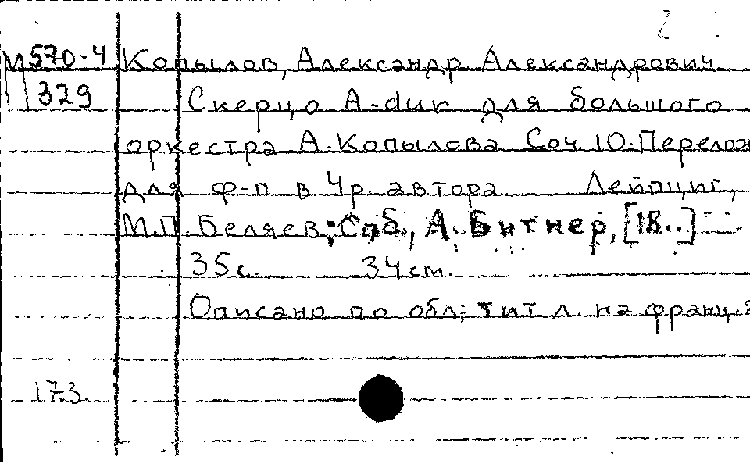 М 570-4 Копылов, Александр Александрович
329 Скерцо A-dur для большого
оркестра А. Копылова Соч. 10. Перелож
для ф-п в 4 р. автора. Лейпциг,
М.П. Беляев; Спб., А. Битнер, [18..]
35 с. 34 см.
Описано по обл; тит л. на франц. я
173